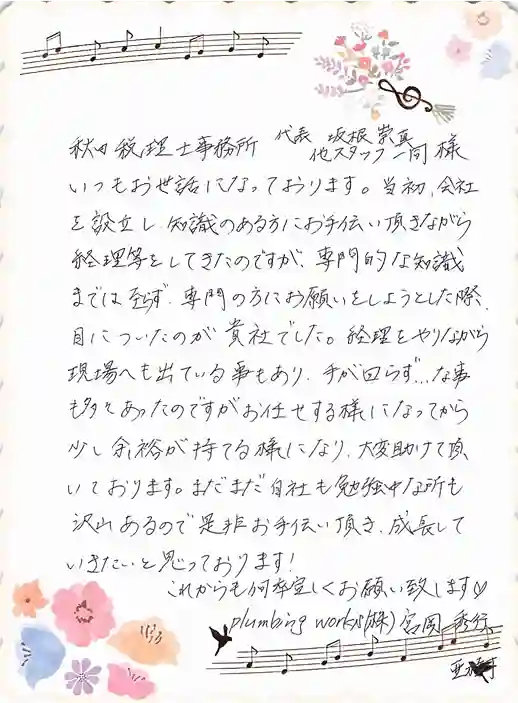 秋田税理士事務所 代表 坂根崇真
他スタッフ一同 様
いつもお世話になっております。当初、会社
を設立し、知識のある方にお手伝い頂きながら
経理等をしてきたのですが、専門的な知識
までは至らず、専門の方にお願いをしようとした際、
目についたのが貴社でした。経理をやりながら
現場へも出ている事もあり、手が回らず…な事
も多々あったのですがお任せする様になってから
少し余裕が持てる様になり、大変助けて頂
いております。まだまだ自社も勉強中な所も
沢山あるので是非お手伝い頂き、成長して
いきたいと思っております!
これからも何卒宜しくお願い致します♡
plumbing works(株) 宮岡